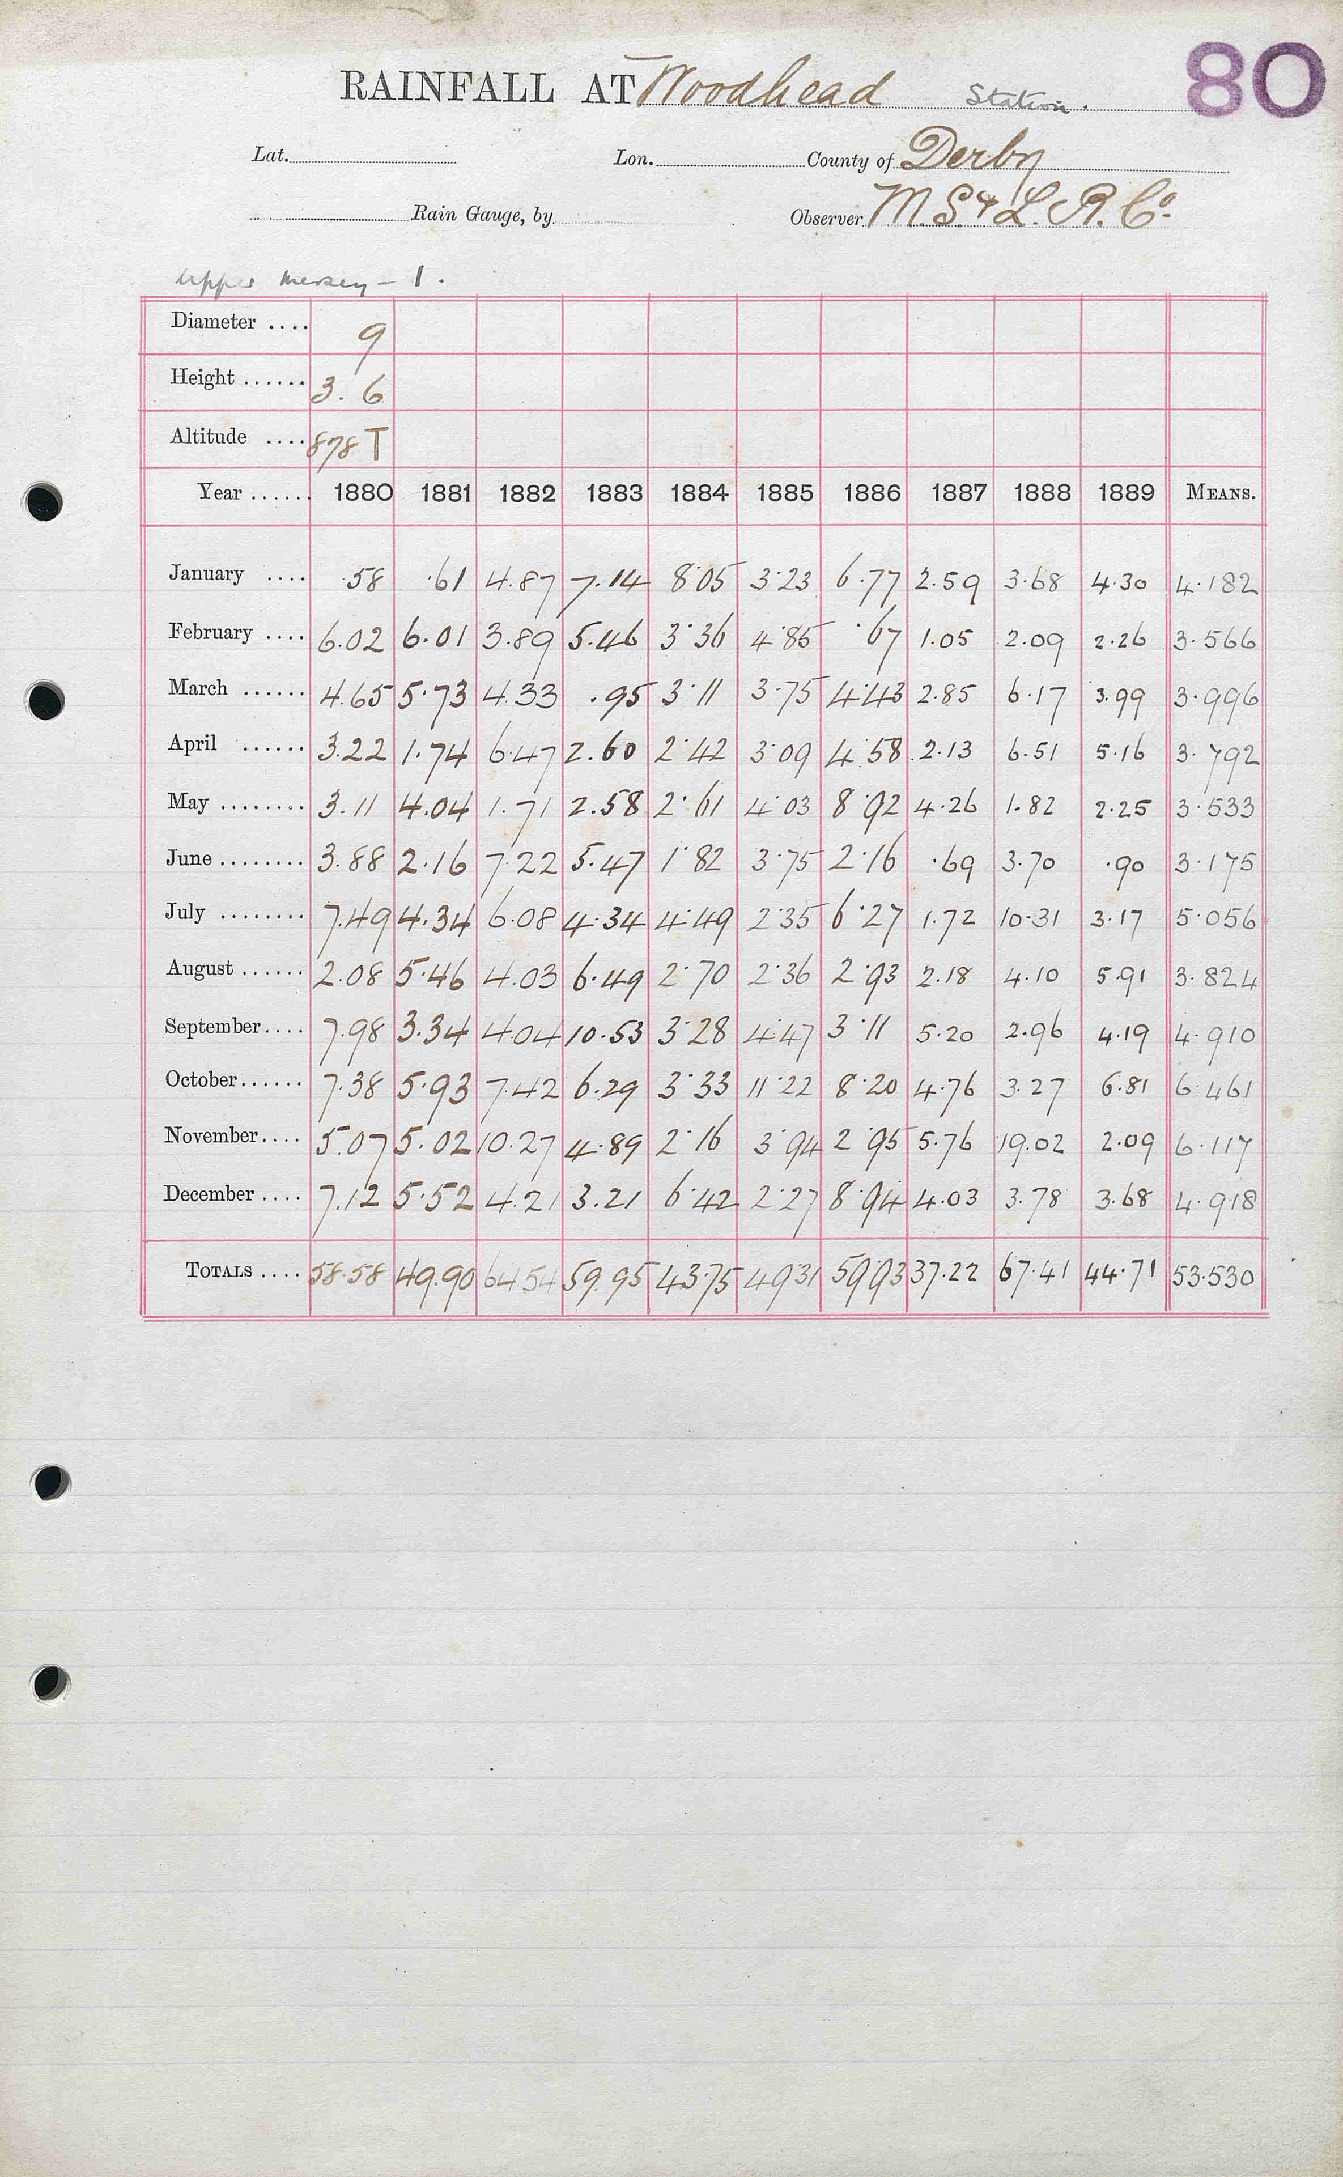 80
RAINFALL AT Woodhead Station.
Lat. Lon. County of Derby
Rain Gauge, by Observer M. S. & L. R. Co.
Upper Mersey - 1.
Diameter .... 9
Height ...... 3. 6
Altitude .... 878 T
Year ...... 1880 1881 1882 1883 1884 1885 1886 1887 1888 1889 MEANS.
January .... .58 .61 4.87 7.14 8.05 3.23 6.77 2.59 3.68 4.30 4.182
February .... 6.02 6.01 3.89 5.46 3.36 4.85 .67 1.05 2.09 2.26 3.566
March ...... 4.65 5.73 4.33 .95 3.11 3.75 4.43 2.85 6.17 3.99 3.996
April ...... 3.22 1.74 6.47 2.60 2.42 3.09 4.58 2.13 6.51 5.16 3.792
May ........ 3.11 4.04 1.71 2.58 2.61 4.03 8.92 4.26 1.82 2.25 3.533
June ........ 3.88 2.16 7.22 5.47 1.82 3.75 2.16 .69 3.70 .90 3.175
July ........ 7.49 4.34 6.08 4.34 4.49 2.35 6.27 1.72 10.31 3.17 5.056
August ...... 2.08 5.46 4.03 6.49 2.70 2.36 2.93 2.18 4.10 5.91 3.824
September.... 7.98 3.34 4.04 10.53 3.28 4.47 3.11 5.20 2.96 4.19 4.910
October...... 7.38 5.93 7.42 6.29 3.33 11.22 8.20 4.76 3.27 6.81 6.461
November.... 5.07 5.02 10.27 4.89 2.16 3.94 2.95 5.76 19.02 2.09 6.117
December .... 7.12 5.52 4.21 3.21 6.42 2.27 8.94 4.03 3.78 3.68 4.918
TOTALS .... 58.58 49.90 64.54 59.95 43.75 49.31 59.93 37.22 67.41 44.71 53.530